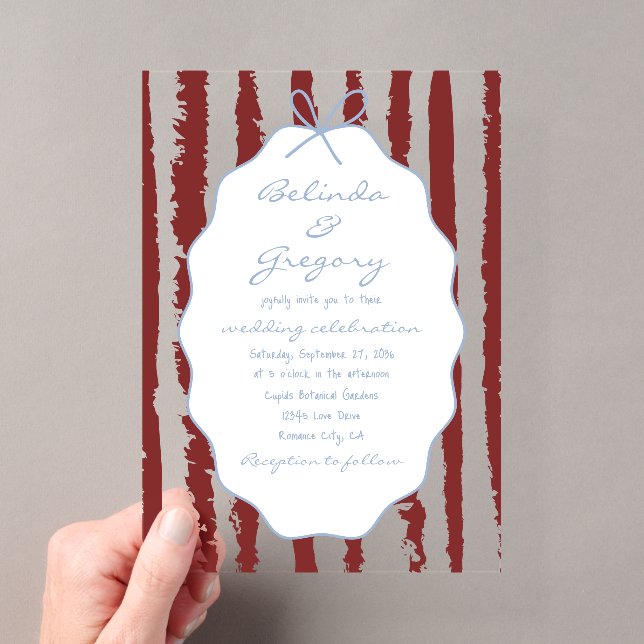 Belinda
&
Gregory
joyfully invite you to their
wedding celebration
Saturday, September 27, 2036
at 5 o'clock in the afternoon
Cupids Botanical Gardens
12345 Love Drive
Romance City, CA
Reception to follow